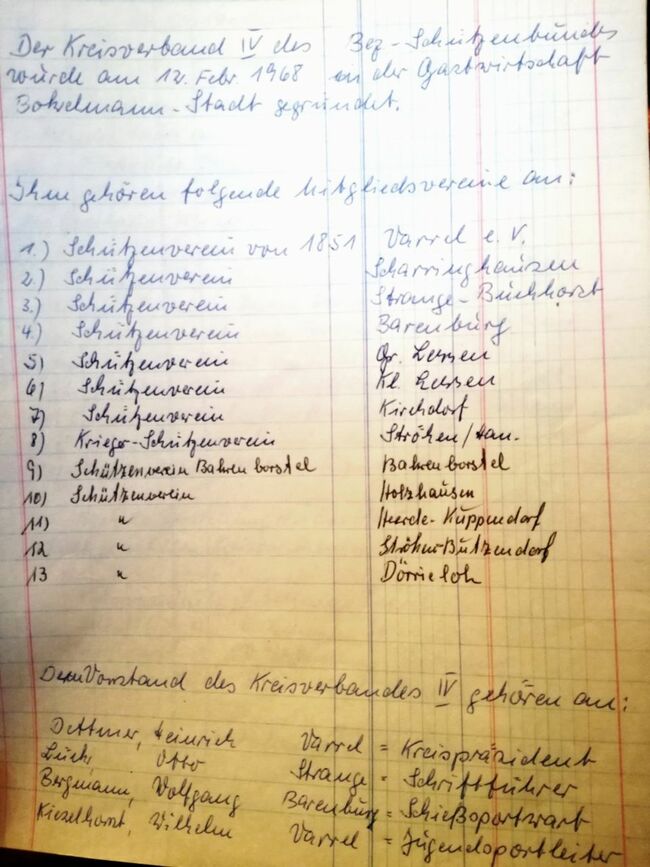 Der Kreisverband IV des Bez-Schützenbundes
wurde am 12. Febr. 1968 in der Gastwirtschaft
Bokelmann-Stadt gegründet.
Ihm gehören folgende Mitgliedsvereine an:
1.) Schützenverein von 1851 Varrel e. V.
2.) Schützenverein Scharringhausen
3.) Schützenverein Strange-Buchhorst
4.) Schützenverein Barenburg
5) Schützenverein Gr. Lessen
6) Schützenverein Kl. Lessen
7) Schützenverein Kirchdorf
8) Krieger-Schützenverein Ströhen/Han.
9) Schützenverein Bahrenborstel Bahrenborstel
10) Schützenverein Holzhausen
11) " Heerde-Kuppendorf
12 " Ströhen-Butzendorf
13 " Dörrieloh
Dem Vorstand des Kreisverbandes IV gehören an:
Dettmer, Heinrich Varrel = Kreispräsident
Otto Strange = Schriftführer
Bergmann, Wolfgang Barenburg = Schießsportwart
Kiezelhorst, Wilhelm Varrel = Jugendsportleiter